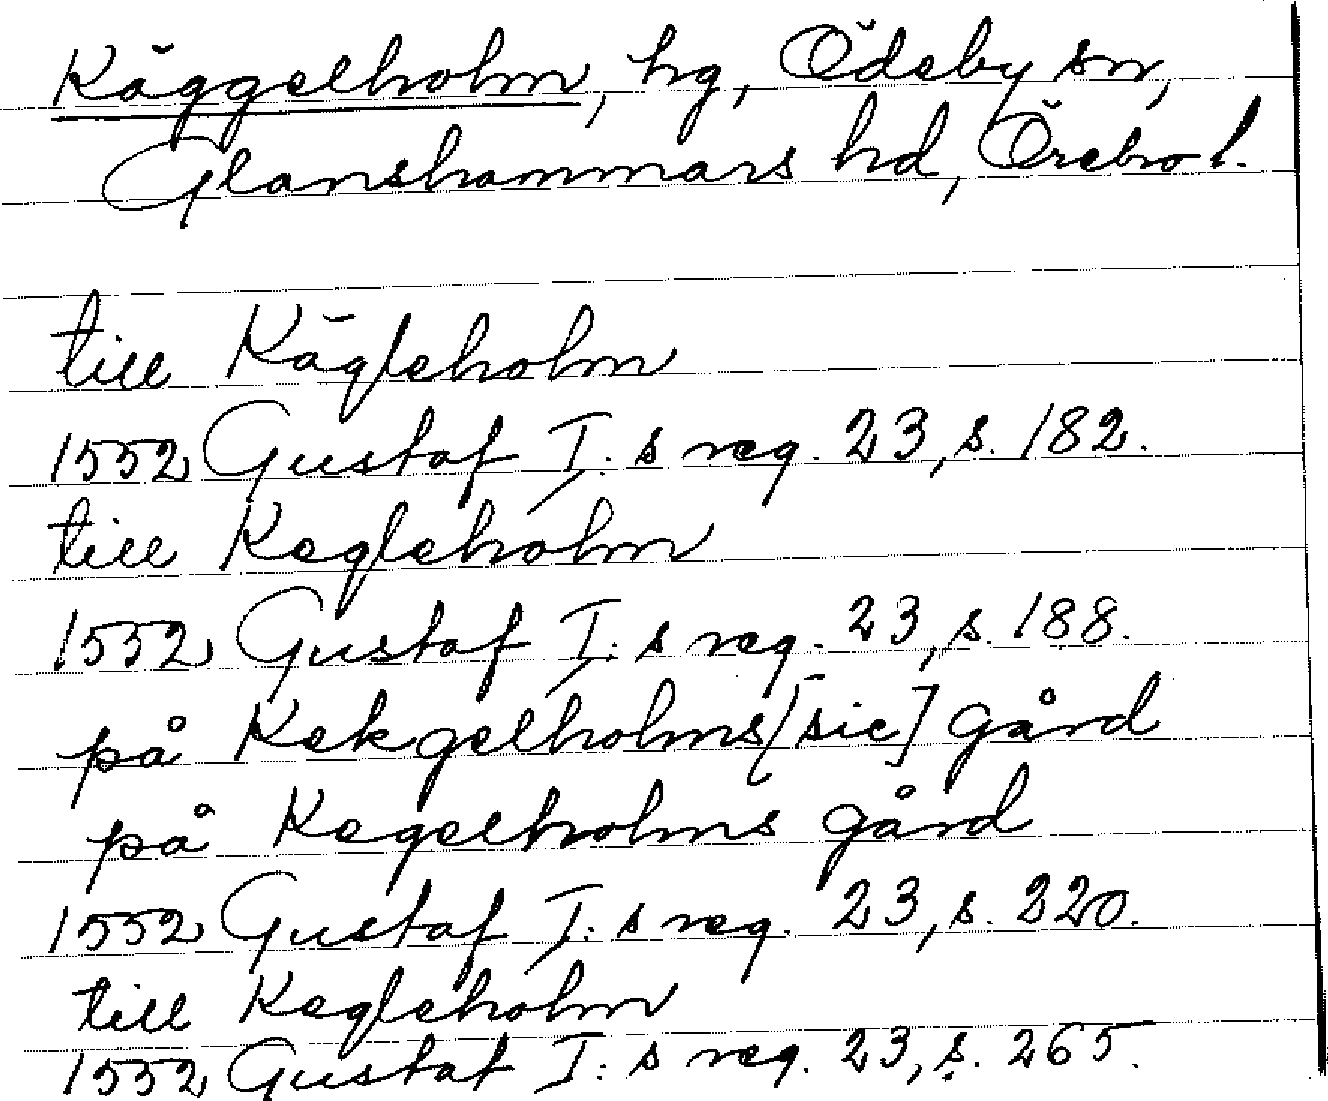 Käggelholm, hg, Ödeby sn,
Glanshammars hd, Örebro l.
till Kägleholm
1552 Gustaf I:s reg. 23, s. 182.
till Kegleholm
1552 Gustaf I:s reg. 23, s. 188.
på Kekgelholms [sic] gård
på Kegelholms gård
1552 Gustaf I:s reg. 23, s. 220.
till Kegleholm
1552 Gustaf I:s reg. 23, s. 265.